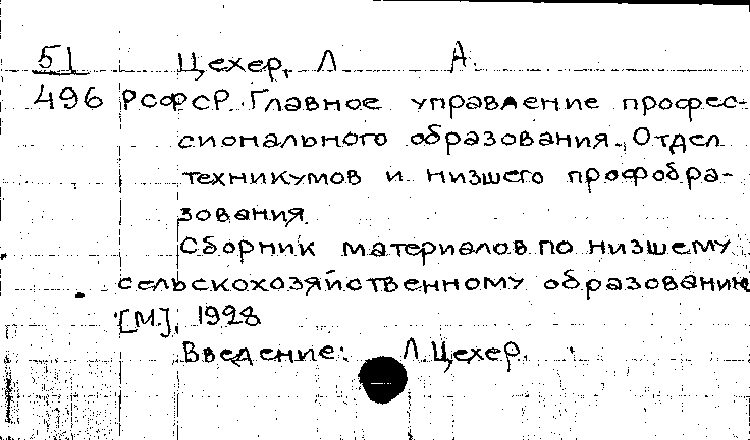 51 Цехер, Л А.
496 РСФСР. Главное управление профес-
сионального образования. Отдел
техникумов и низшего профобра-
зования
Сборник материалов по низшему
сельскохозяйственному образованию
[М.], 1928
Введение: Л. Цехер.